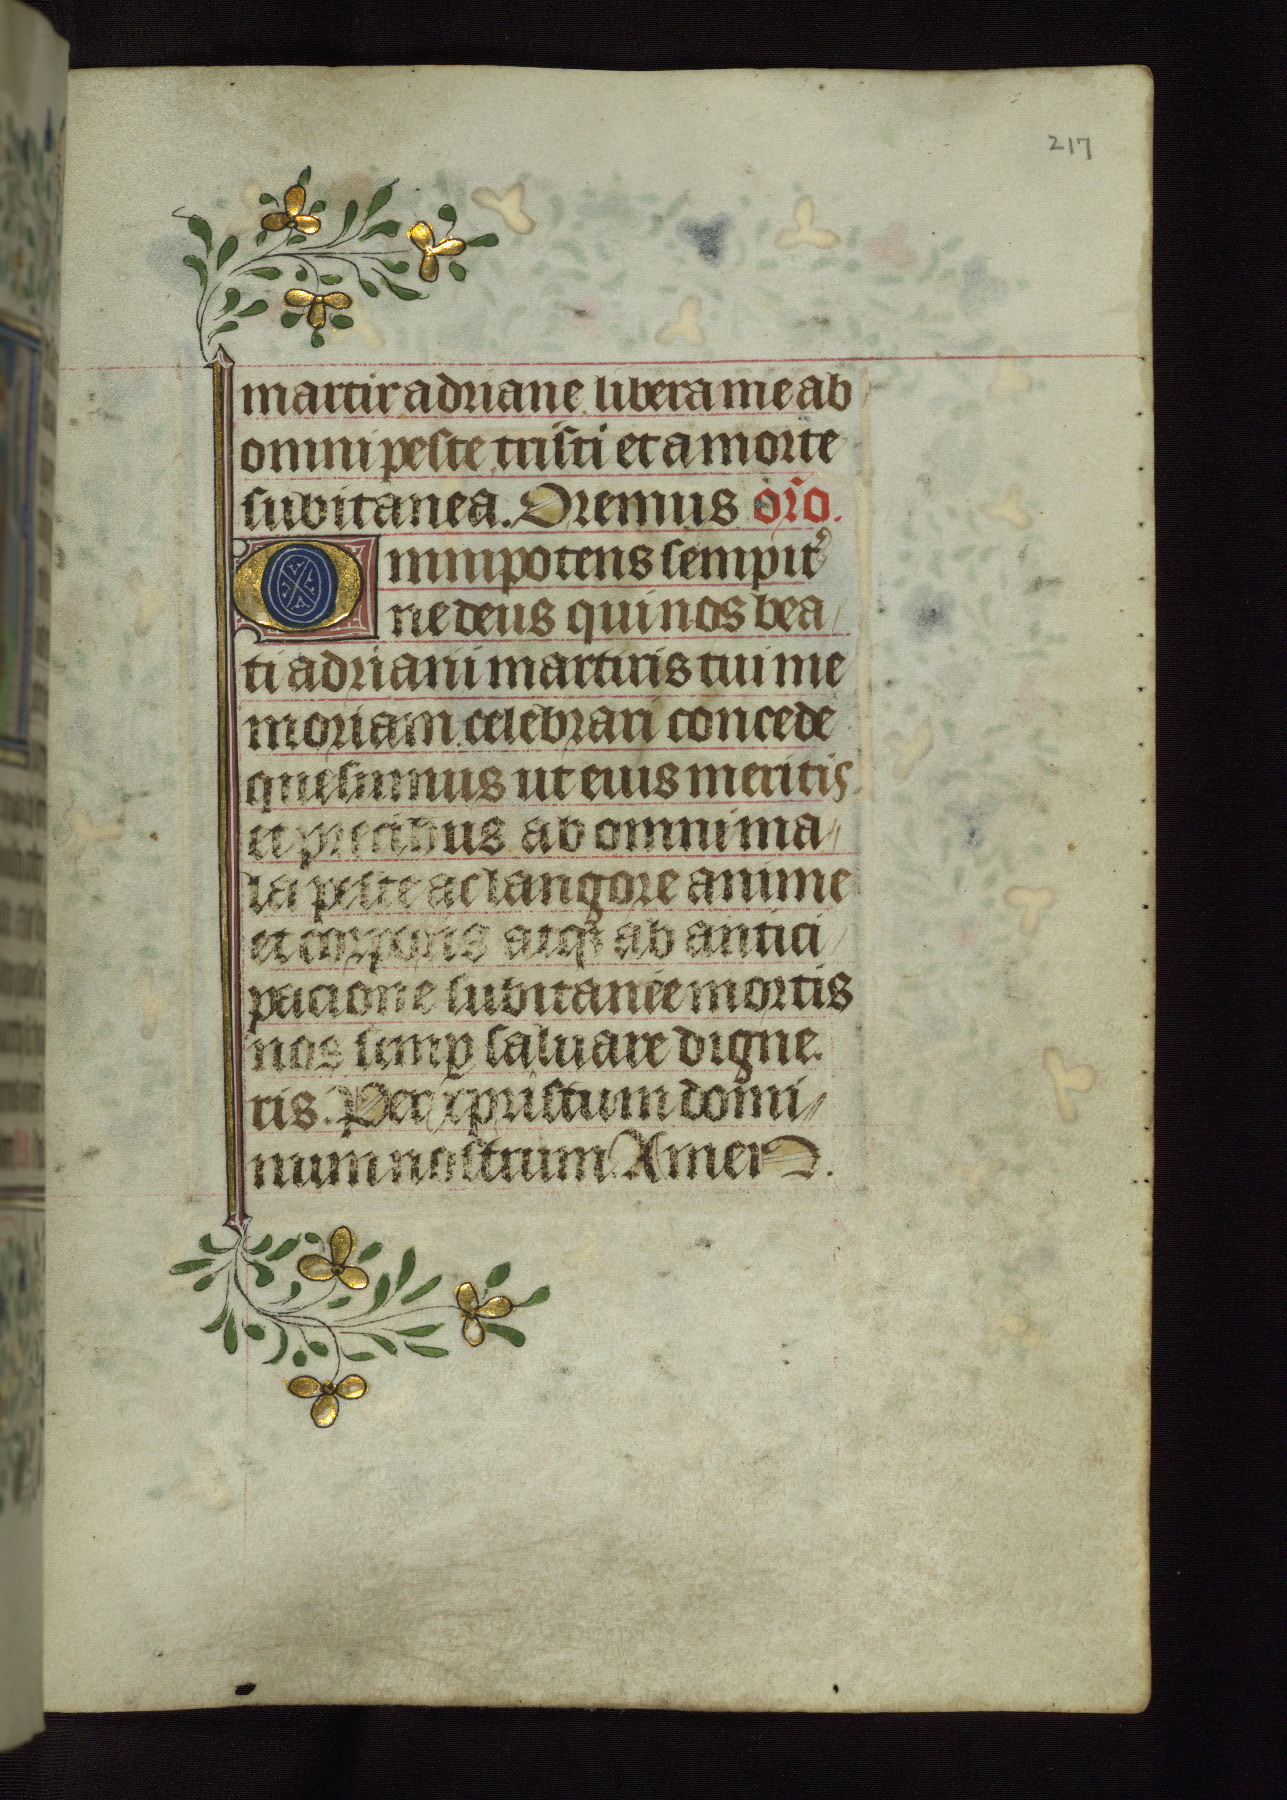 217
martir adriane libera me ab
omni peste tristi et a morte
subitanea. Oremus or̄o.
Omnipotens sempit᷒
ne deus qui nos bea/
ti adriani martiris tui me
moriam celebrari concede
quesumus ut eius meritis
et precibus ab omni ma//
la peste ac langore anime
et corporis atqꝫ ab antici/
pacione subitanee mortis
nos semꝑ saluare digne.
ris. Per xpristum domi//
num nostrum Amen.